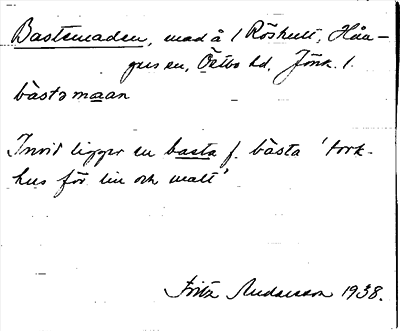 Bastemaden, mad å 1 Röshult, Håa-
gus en, Östbo hd, Jönk. l.
bàstamaan
Invid ligger en basta f. bàsta 'tork-
hus för lin och malt'
Fritz Andersson 1938.